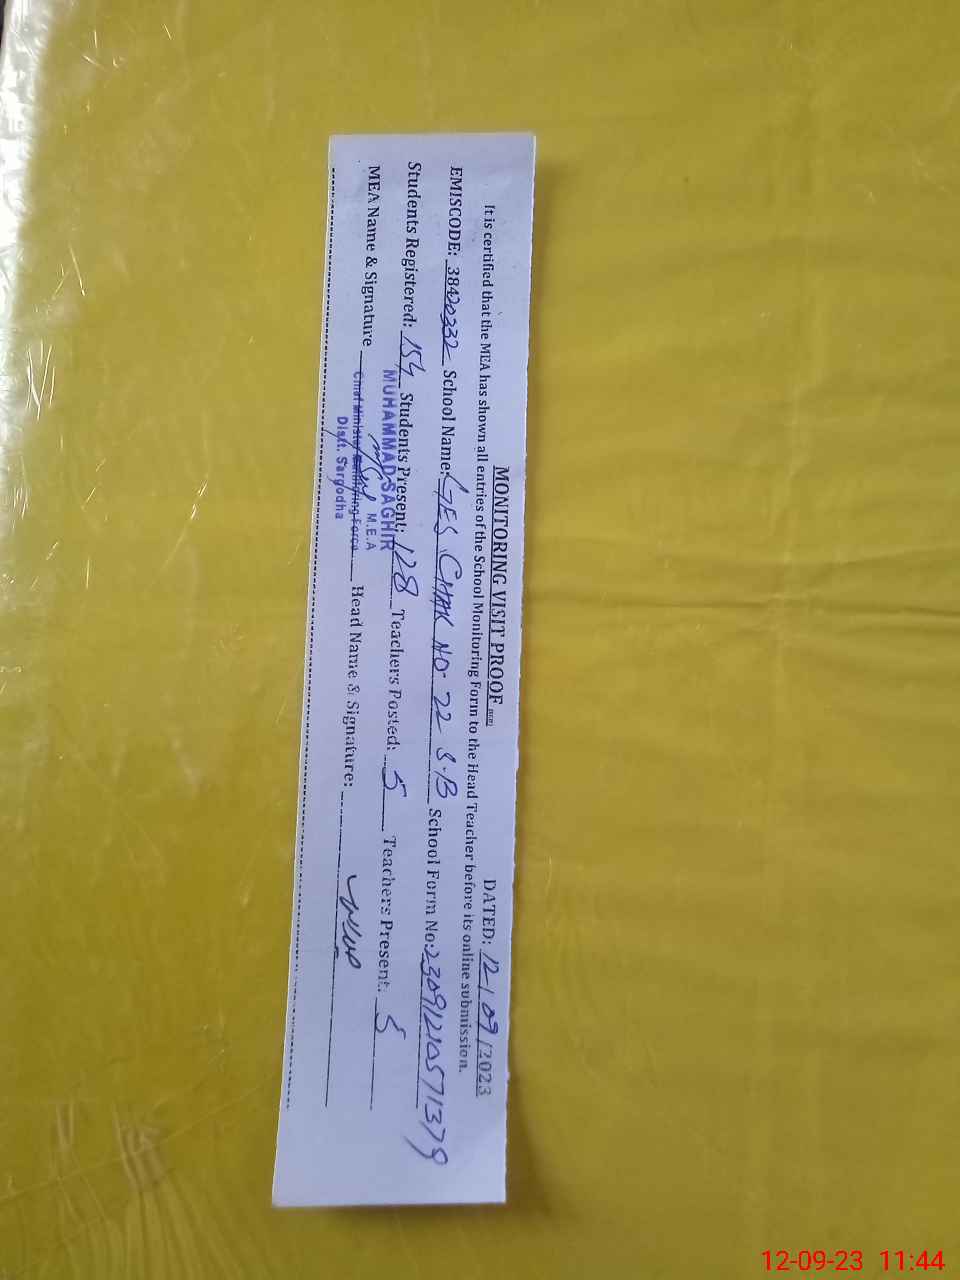 MONITORING VISIT PROOF
DATED: 12/09/2023
It is certified that the MEA has shown all entries of the School Monitoring Form to the Head Teacher before its online submission.
EMISCODE: 38420332 School Name: GES CHAK NO. 22 S.B School Form No: 23091210571379
Students Registered: 154 Students Present: 128 Teachers Posted: 5 Teachers Present: 5
MUHAMMAD SAGHIR
M.E.A
MEA Name & Signature Head Name & Signature:
Chief Minister Monitoring Force
Distt. Sargodha
12-09-23 11:44